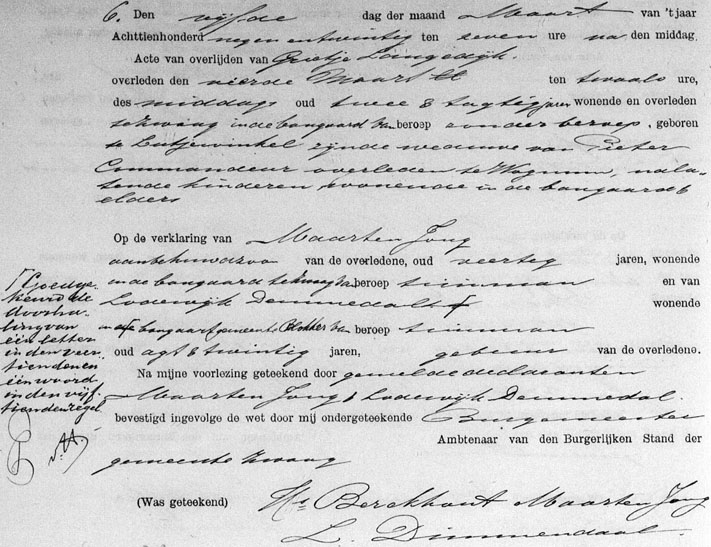 6. Den vijfde dag der maand Maart van 't jaar
Achttienhonderd negen en twintig ten seven ure na den middag,
Acte van overlijden van Grietje Langedijk.
overleden den vierde Maart ll ten twaalf ure,
des middags oud twee & tagtig jaren wonende en overleden
te Zwaag in de bangaard van beroep zonder beroep, geboren
te Lutjewinkel zijnde weduwe van Pieter
Commandeur overleden te Wognum, nala-
tende kinderen wonende in de bangaard &
elders
Op de verklaring van Maarten Jong
aanbehuwdzoon van de overledene, oud veertig jaren, wonende
in de bangaard te Zwaag van beroep tuinman en van
Lodewijk Demmedal wonende
in de bangaart gemeente Blokker van beroep tuinman
oud agt & twintig jaren, gebuur van de overledene.
Na mijne voorlezing geteekend door gemelde declaranten
Maarten Jong & Lodewijk Demmedal.
bevestigd ingevolge de wet door mij ondergeteekende Burgemeester
Ambtenaar van den Burgerlijken Stand der
gemeente Zwaag
(Was geteekend) Hs Berckhout Maarten Jong
L. Dimmendaal.
Goedge-
keurd de
doorha-
ling van
één letter
in den veer-
tienden en
één woord
in den vijf-
tienden regel